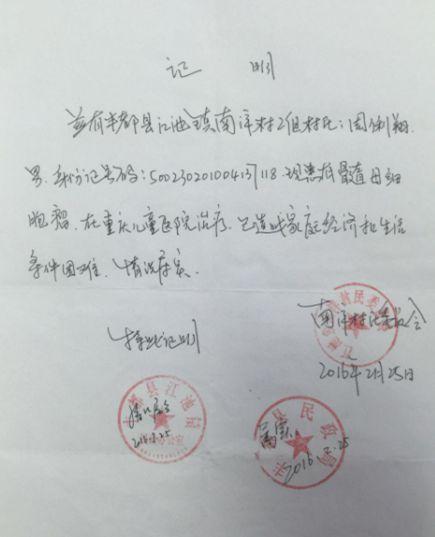 证 明
兹有丰都县江池镇南洋村2组村民:周俐翔,
男.身份证号码:500230201004137118.现患有骨髓母细
胞瘤.在重庆儿童医院治疗.已造成家庭经济和生活
条件困难.情况属实.
特此证明
南洋村民委员会
2016年2月25日
县江池镇
2016.2.25
县民政局
属实
2016.2.25